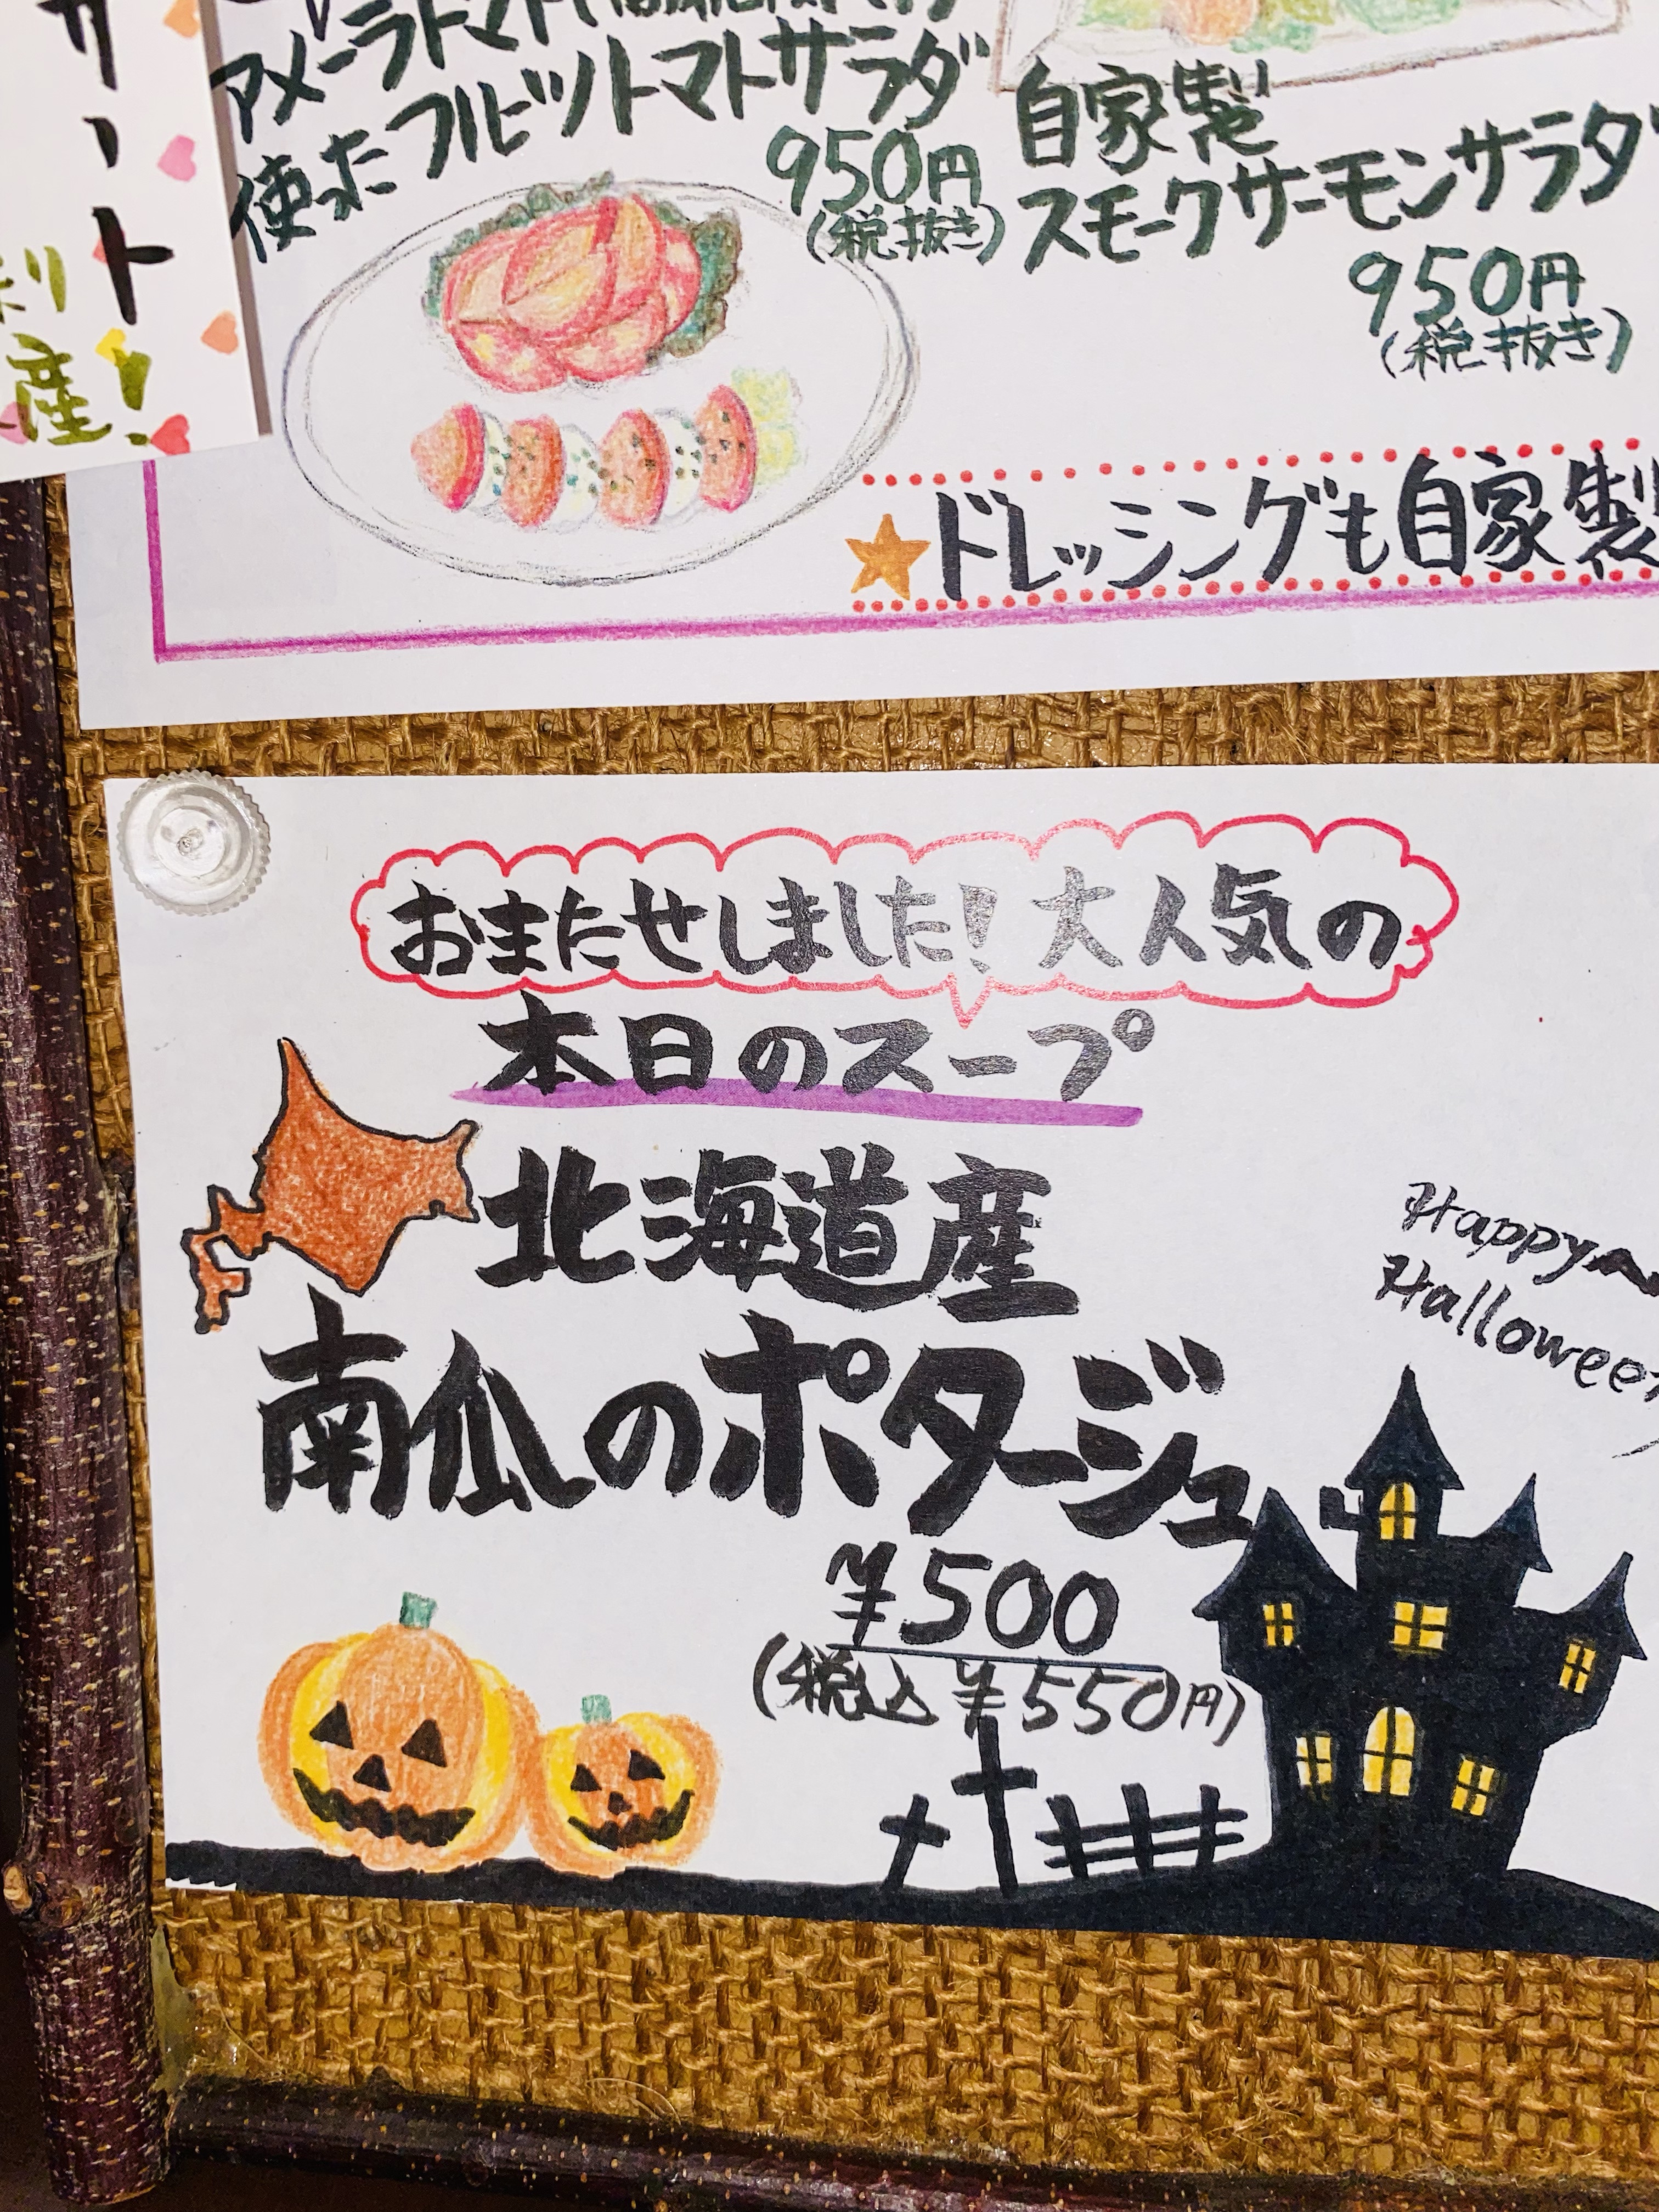 サート
産!
アメーラトマト
使ったフルーツトマトサラダ
950円
(税抜き)
自家製
スモークサーモンサラダ
950円
(税抜き)
ドレッシングも自家製
おまたせしました!大人気の
本日のスープ
北海道産
南瓜のポタージュ
¥500
(税込¥550円)
Happy
Halloween